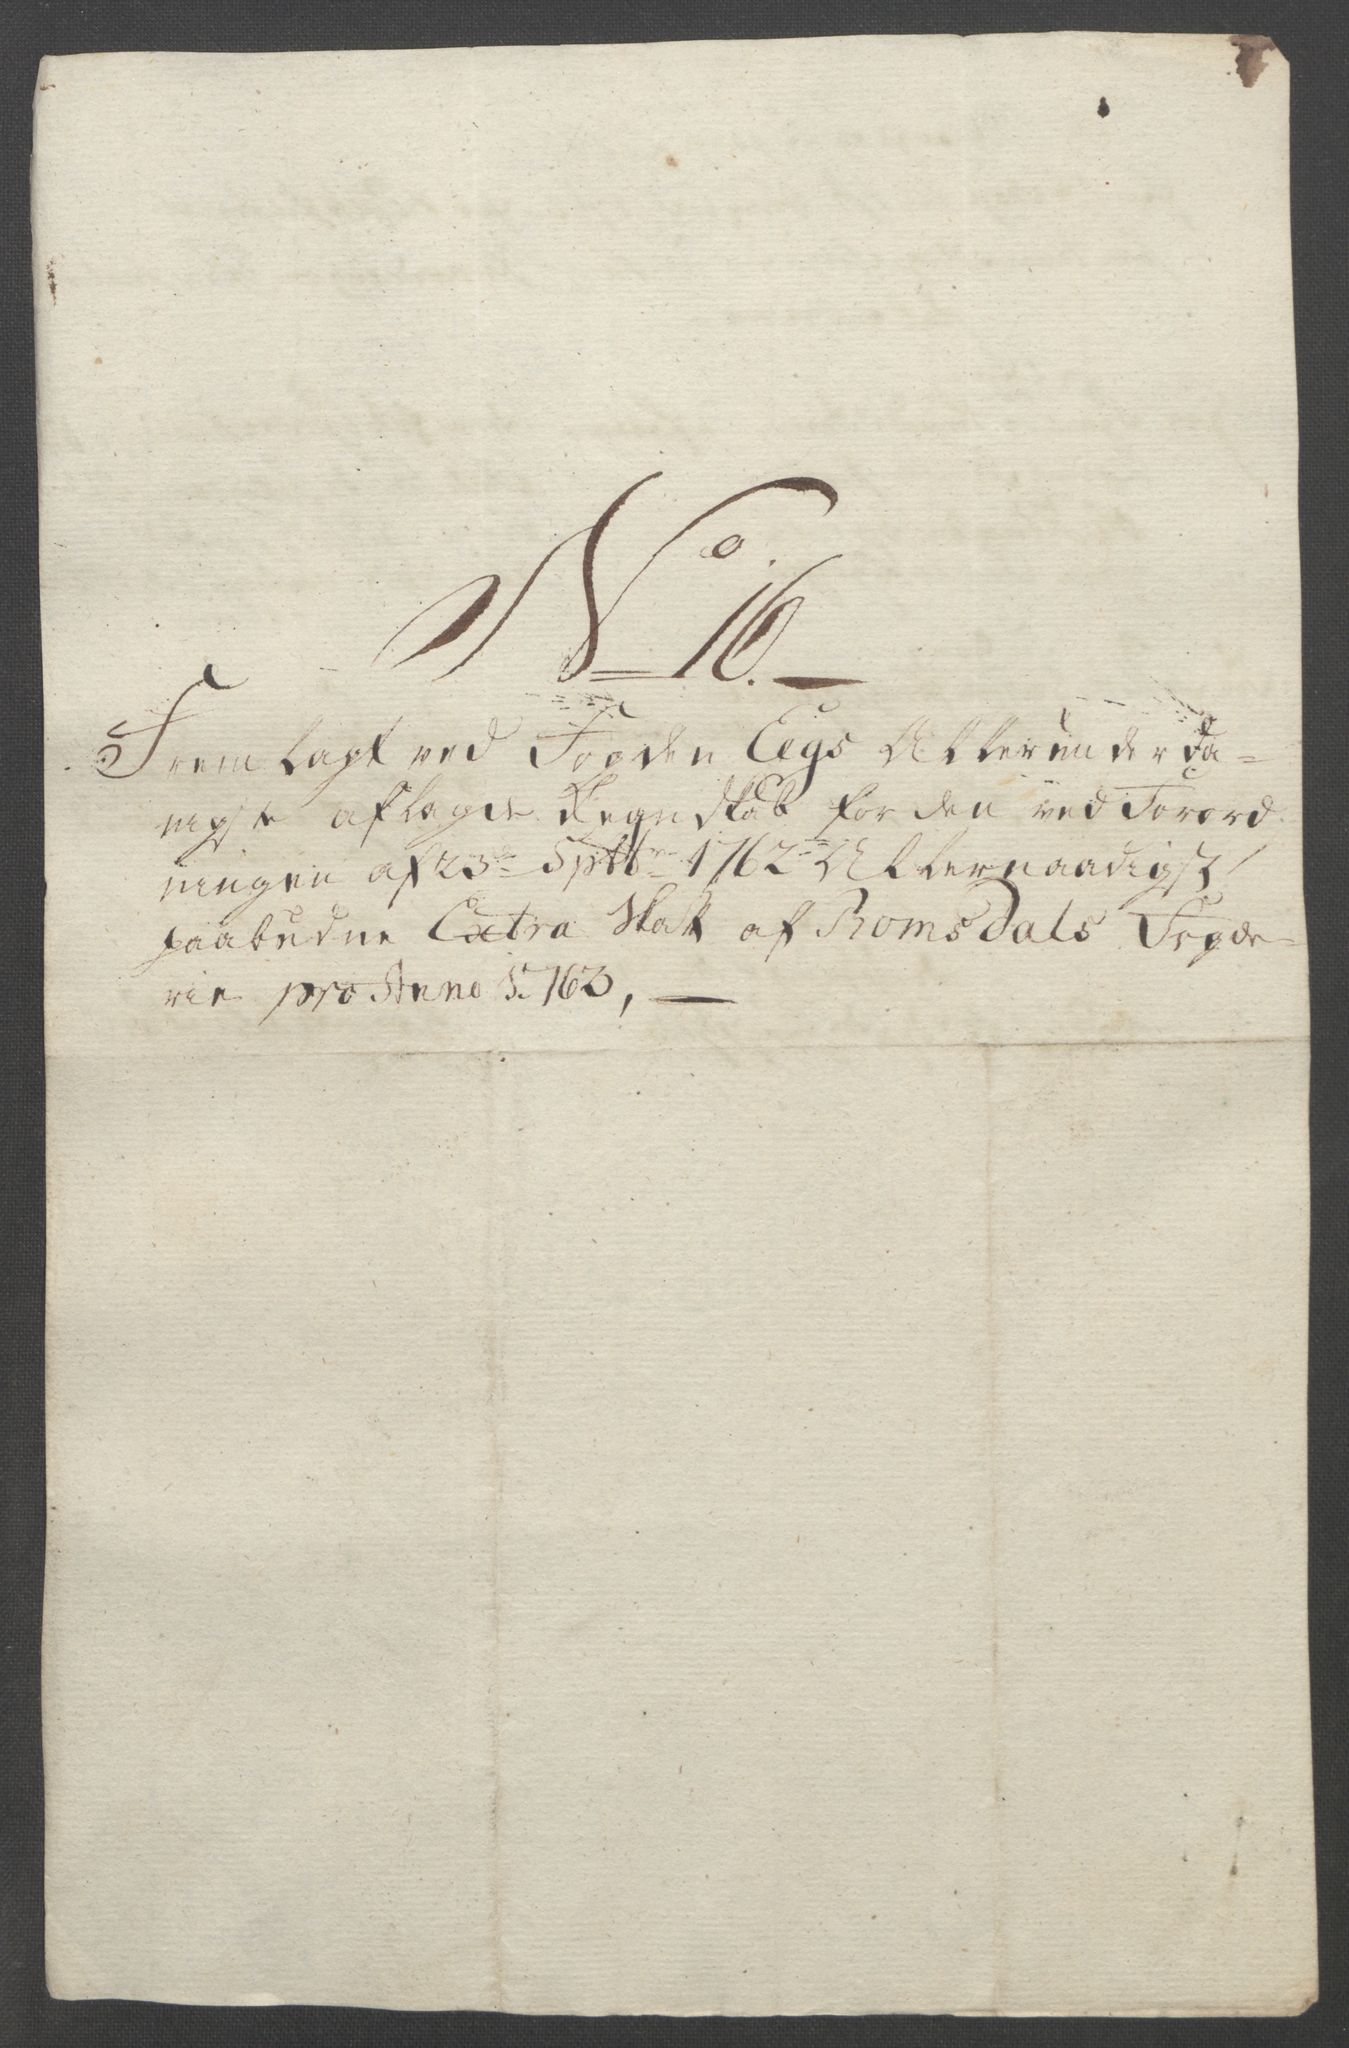 No. 16.
Fremlagt ved Fogden Eegs Allerunderda-
nigste aflagde Regnskab for den ved Forord
ningen af 23de Sptbr 1762 Allernaadigst
paabudne Extra Skatt af Romsdals Fogde-
rie pro Anno 1763,